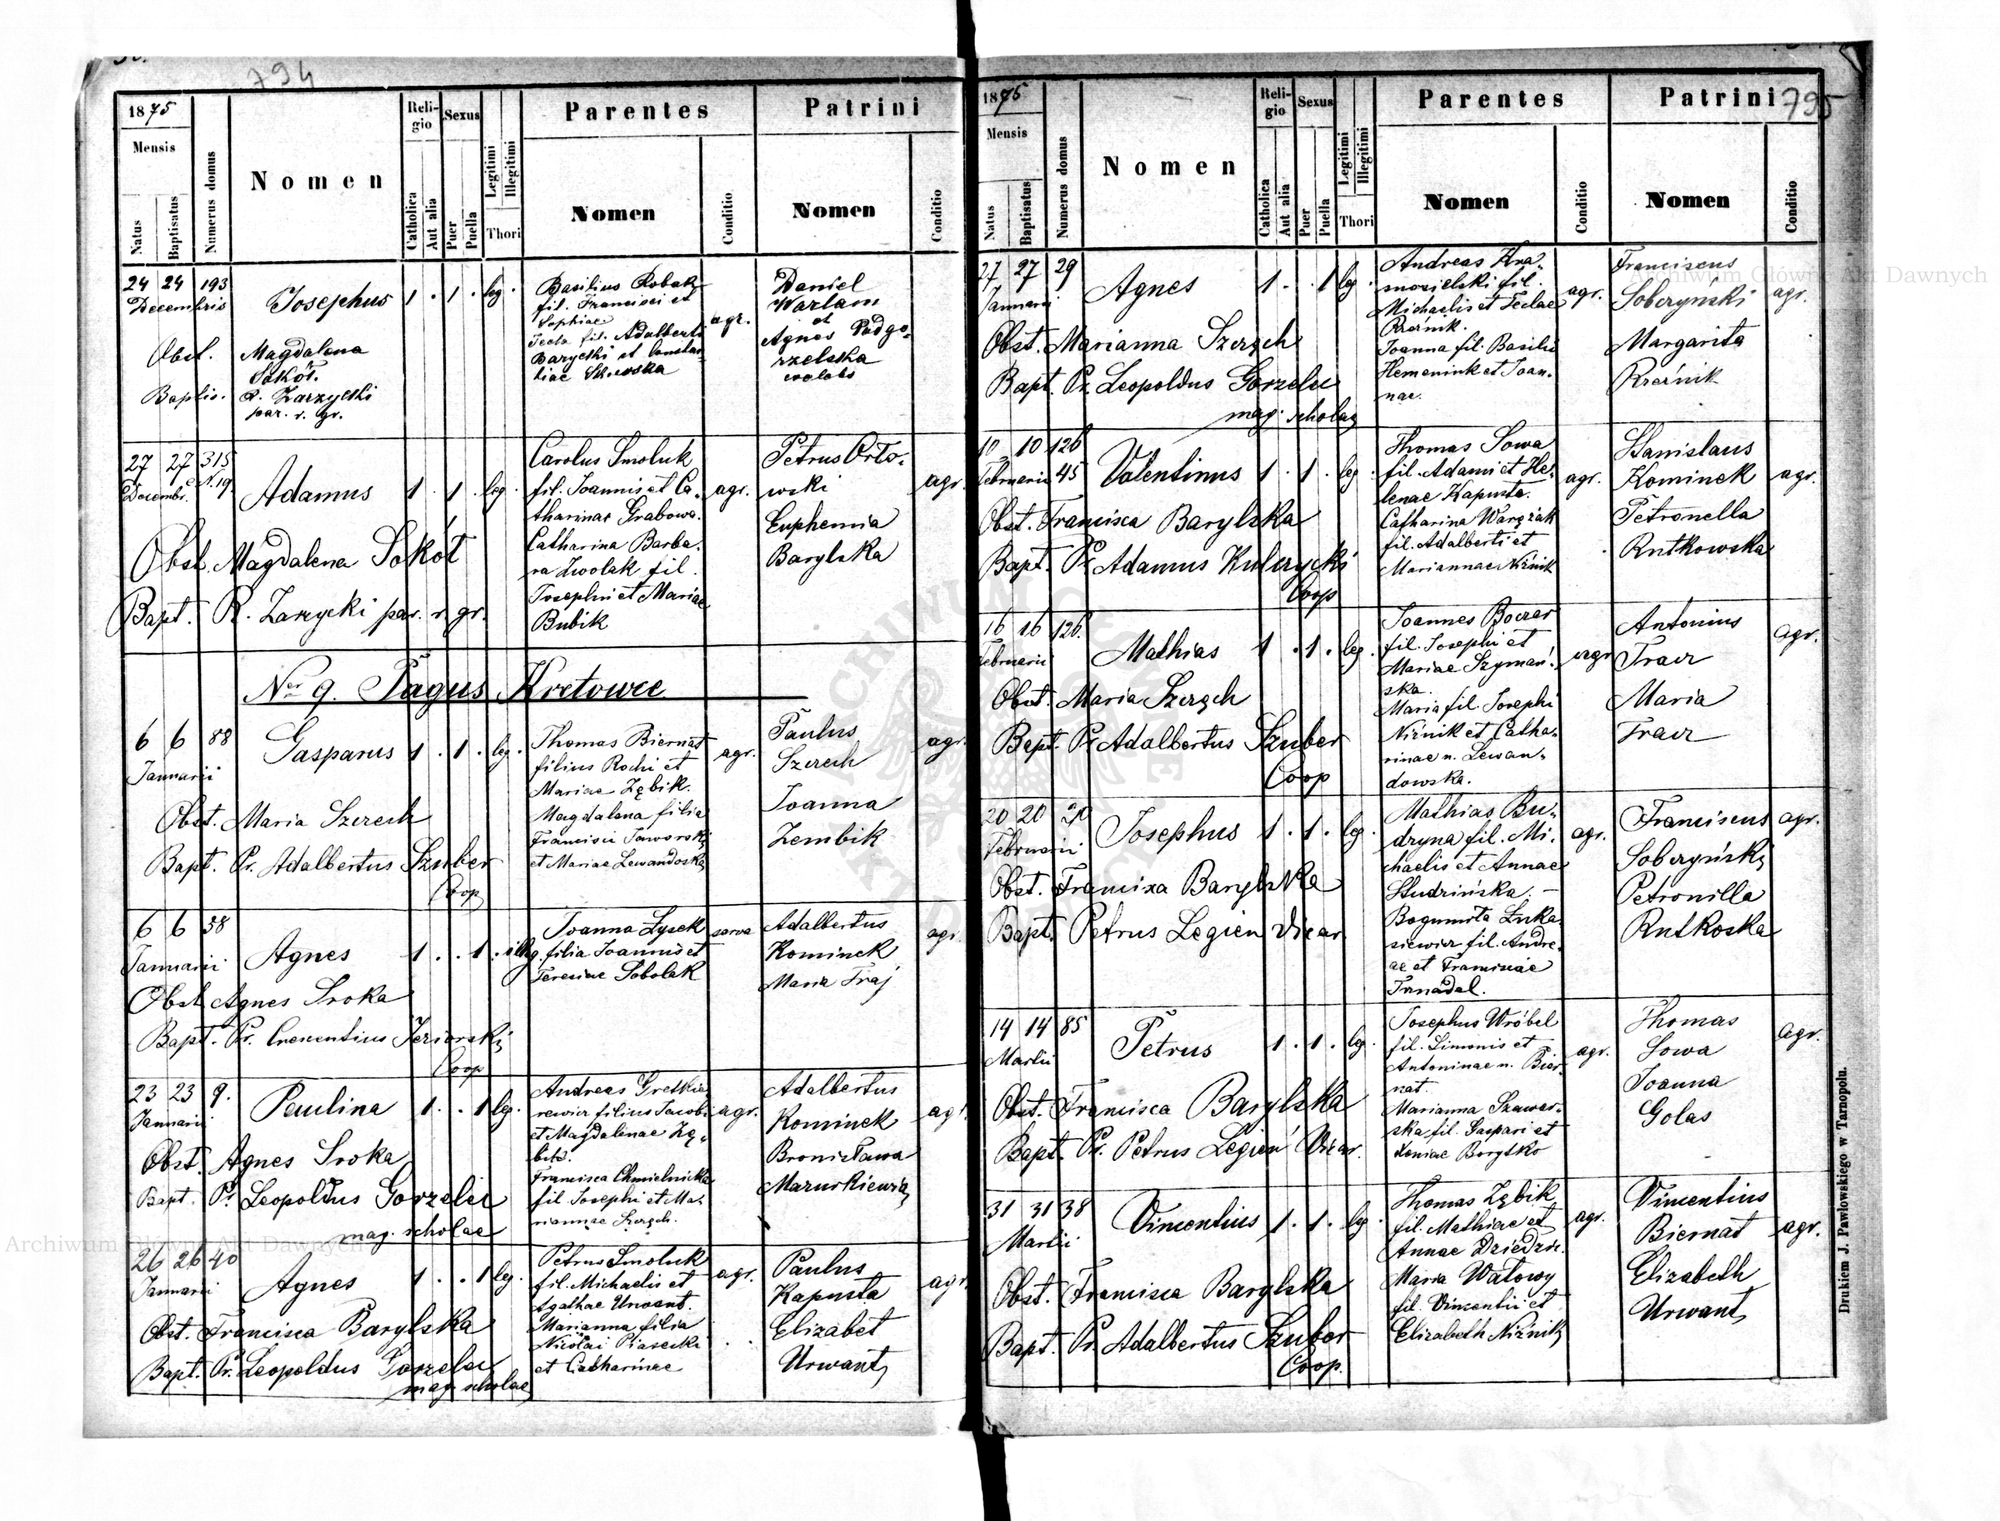 794
1875
Mensis
Natus
Baptisatus
Numerus domus
Nomen
Religio
Catholica
Aut alia
Sexus
Puer
Puella
Legitimi
Illegitimi
Thori
Parentes
Nomen
Conditio
Patrini
Nomen
Conditio
24 24 193
Decembris
Josephus
1 . 1 . leg.
Basilius Robak
fil. Francisci et
Sophiae
Tecla fil. Adalberti
Barycki et Constan-
tiae
agr.
Daniel
Warlam
et
Agnes Padgo-
rzelska
Obst. Magdalena
Sokół.
Baptis. R. Zarzycki
par. r. gr.
27 27 315
Decembr. N. 19
Adamus
1 . 1 . leg.
Carolus Smoluk
fil. Joannis et Ca-
tharinae Grabowa.
Catharina Barba-
ra Zwolak fil.
Josephi et Mariae
Bubik
agr.
Petrus Orło-
wski
Euphemia
Barylska
agr.
Obst. Magdalena Sokół
Bapt. R. Zarzycki par. r. gr.
Nr 9. Pagus Kretowce
6 6 88
Januarii
Gasparus
1 . 1 . leg.
Thomas Biernat
filius Rochi et
Mariae Zębik.
Magdalena filia
Francisci Jaworski
et Mariae Lewandoska
agr.
Paulus
Szerech
Joanna
Zembik
agr.
Obst. Maria Szerech
Bapt. Pr. Adalbertus Szuber
Coop
6 6 38
Januarii
Agnes
1 . . 1 . illeg.
Joanna Łysek
filia Joannis et
Teresiae Sobolak
serva
Adalbertus
Kominek
Maria Traj
agr.
Obst. Agnes Sroka
Bapt. Pr. Jeziorski
Coop
23 23 9.
Januarii
Paulina
1 . . 1 leg.
Andreas Gretkie-
rewicz filius Jacobi
et Magdalenae Zę-
bik.
Francisca Chmielnicka
fil Josephi et Ma-
riannae Szeręch.
agr.
Adalbertus
Kominek
Bronisława
Mazurkiewicz
agr.
Obst. Agnes Sroka
Bapt. Pr. Leopoldus Gorzelec
mag. scholae
26 26 40
Januarii
Agnes
1 . . 1 leg.
Petrus Smoluk
fil. Michaelis et
Agathae Urwant.
Marianna filia
Nicolai Piasecki
et Catharinae
agr.
Paulus
Kapusta
Elizabet
Urwant
agr.
Obst. Francisca Barylska
Bapt. Pr. Leopoldus Gorzelec
mag. scholae
795
1875
Mensis
Natus
Baptisatus
Numerus domus
Nomen
Religio
Catholica
Aut alia
Sexus
Puer
Puella
Legitimi
Illegitimi
Thori
Parentes
Nomen
Conditio
Patrini
Nomen
Conditio
27 27 29
Januarii
Agnes
1 . . 1 leg.
Andreas Kra-
fil.
Michaelis et Teclae
Rzeźnik.
Joanna fil. Basilii
Hemeniuk et Joan-
nae.
agr.
Franciscus
Soberzyński
Margarita
Rzeźnik
agr.
Obst. Marianna Szeręch
Bapt. Pr. Leopoldus Gorzelec
mag. scholae
10 10 126
Februarii 45
Valentinus
1 . 1 . leg.
Thomas Sowa
fil. Adami et He-
lenae Kapusta.
Catharina Warężak
fil. Adalberti et
Mariannae Niżnik
agr.
Stanislaus
Kominek
Petronella
Rutkowska
agr.
Obst. Francisca Barylska
Bapt. Pr Adamus Kulczycki
Coop
16 16 126
Februarii
Mathias
1 . 1 . leg.
Joannes Boczar
fil. Josephi et
Mariae Szymań-
ska.
Maria fil. Josephi
Niżnik et Catha-
rinae n. Lewan-
dowska.
agr
Antonius
Tracz
Maria
Tracz
agr.
Obst. Maria Szeręch
Bapt. Pr Adalbertus Szuber
Coop
20 20 20
Februarii
Josephus
1 . 1 . leg.
Mathias Bu-
dryna fil. Mi-
chaelis et Annae
Studzińska. -
Bogumiła Łuka-
siewicz fil. Andre-
ae et Franciscae
Trnadel.
agr.
Franciscus
Soberzyński
Petronilla
Rutkoska
agr.
Obst. Francisca Barylska
Bapt. Petrus Legień Vicar
14 14 85
Martii
Petrus
1 . 1 . leg.
Josephus Wróbel
fil. Simonis et
Antoninae n. Bier-
nat.
Marianna Szawar-
ska fil. Gaspari et
Xeniae Borytko
agr.
Thomas
Sowa
Joanna
Golas
agr.
Obst. Francisca Barylska
Bapt. Pr. Petrus Legień Vicar.
31 31 38
Martii
Vincentius
1 . 1 . leg.
Thomas Zębik
fil. Mathiae et
Annae Dziedzic.
Maria Watowy
fil. Vincentii et
Elizabeth Niżnik
agr.
Vincentius
Biernat
Elizabeth
Urwant
agr.
Obst. Francisca Barylska
Bapt. Pr. Adalbertus Szuber
Coop.
Drukiem J. Pawłowskiego w Tarnopolu.
Archiwum Główne Akt Dawnych
Archiwum Główne Akt Dawnych